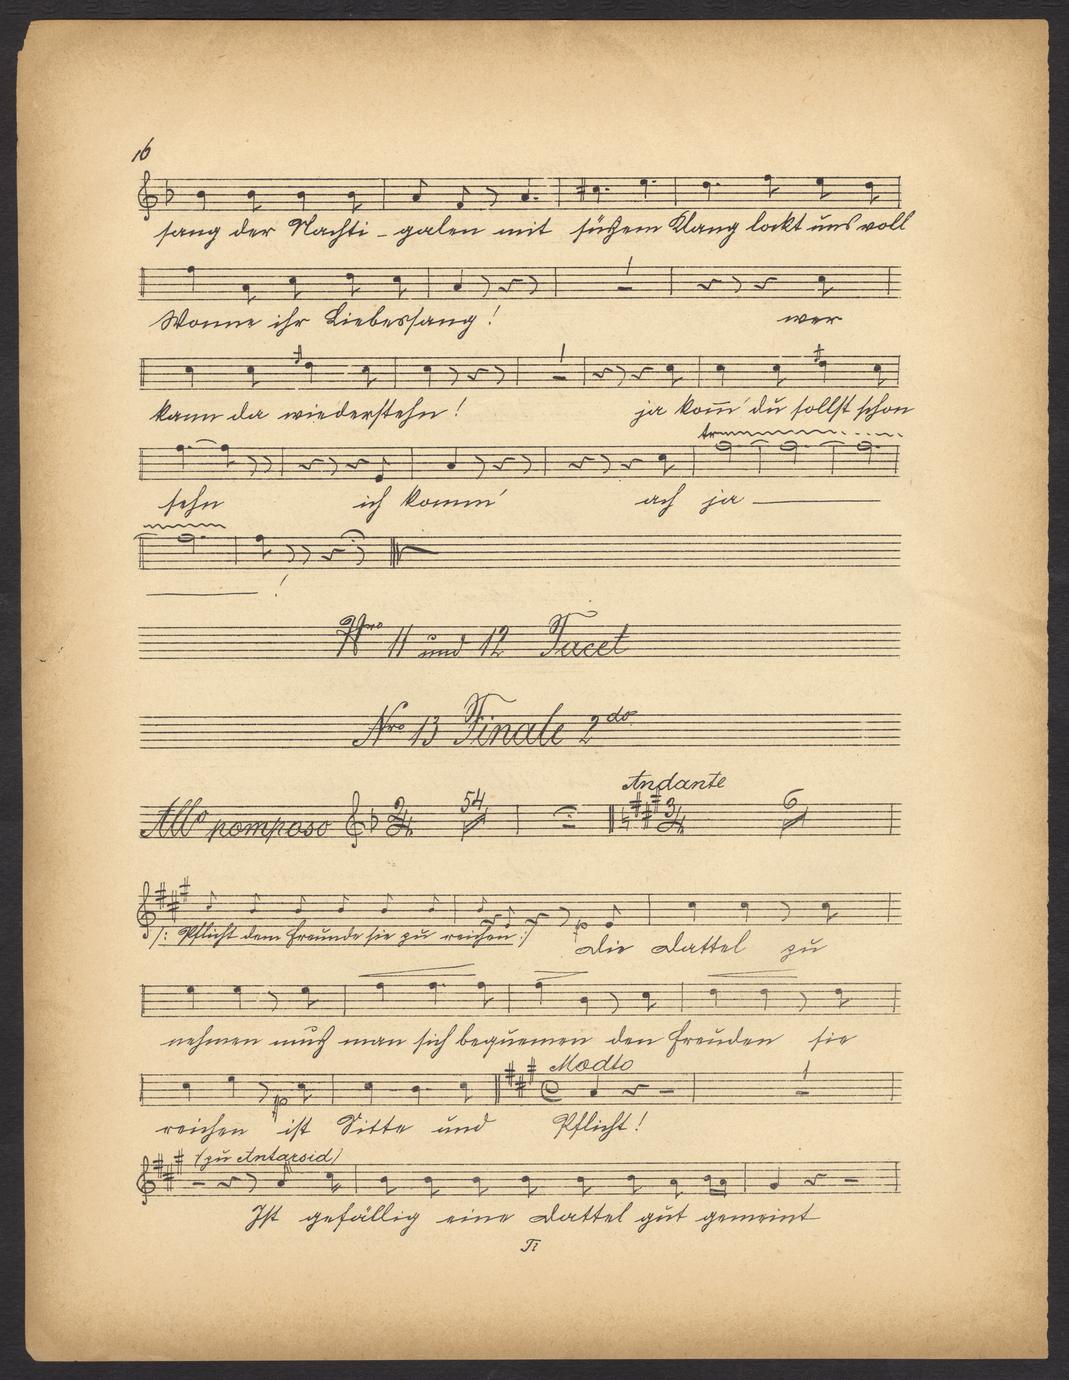 16
sang der Nachti-galen mit süßem Klang lockt uns voll
Wonne ihr Liebessang! wer
kann da wiederstehn! ja kom̅' du sollst schon
tr
sehn ich komm' ach ja
!
Nro 11 und 12 Tacet
Nro 13 Finale 2do
Andante
Allo pomposo 2/4 54 3/4 6
/: Pflicht dem Freunde sie zu reichen :/ die Dattel zu
nehmen muß man sich bequemen den Freuden sie
Modto
reichen ist Sitte und Pflicht!
(zu Antarsid)
Ist gefällig eine Dattel gut gemeint